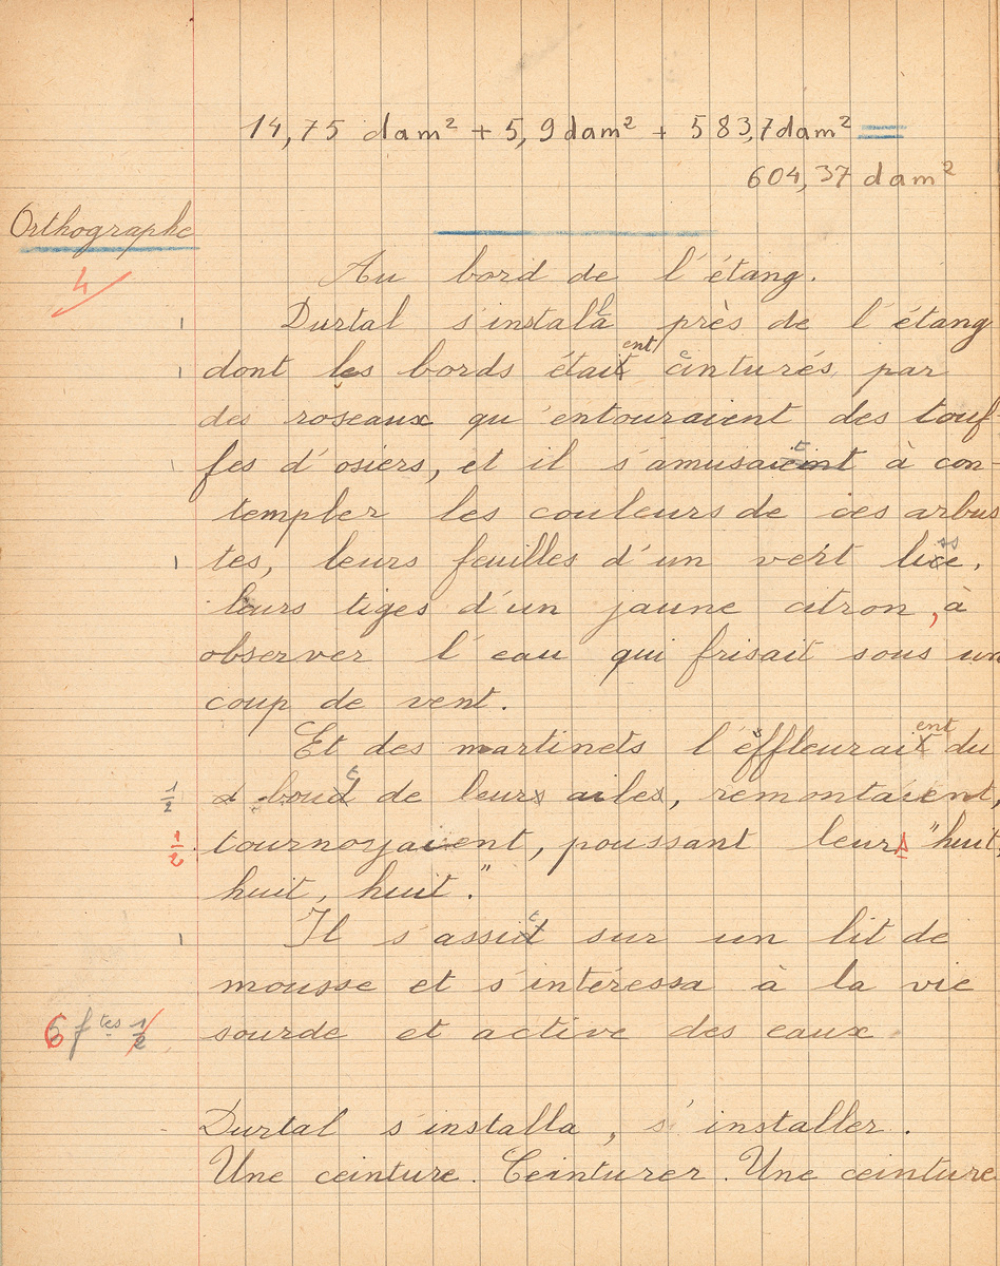 14,75 dam² + 5,9 dam² + 583,7 dam² =
604,37 dam²
Orthographe
4
Au bord de l'étang.
1 Durtal s'instala l près de l'étang
1 dont les bords était ent cinturés e par
des roseaux qu'entouraient des touf
1 fes d'osiers, et il s'amusaient t à con-
templer les couleurs de ces arbus
1 tes, leurs feuilles d'un vert lice ss,
leurs tiges d'un jaune citron, à
observer l'eau qui frisait sous un
coup de vent.
Et des martinets l'effleurait ent du
1/2 boud t de leurs ailes, remontaient,
1/2 tournoyaient, poussant leurs "huit,
huit, huit."
1 Il s'assid t sur un lit de
mousse et s'intéressa à la vie
6 ftes 1/2 sourde et active des eaux.
Durtal s'installa, s'installer.
Une ceinture. Ceinturer. Une ceinture